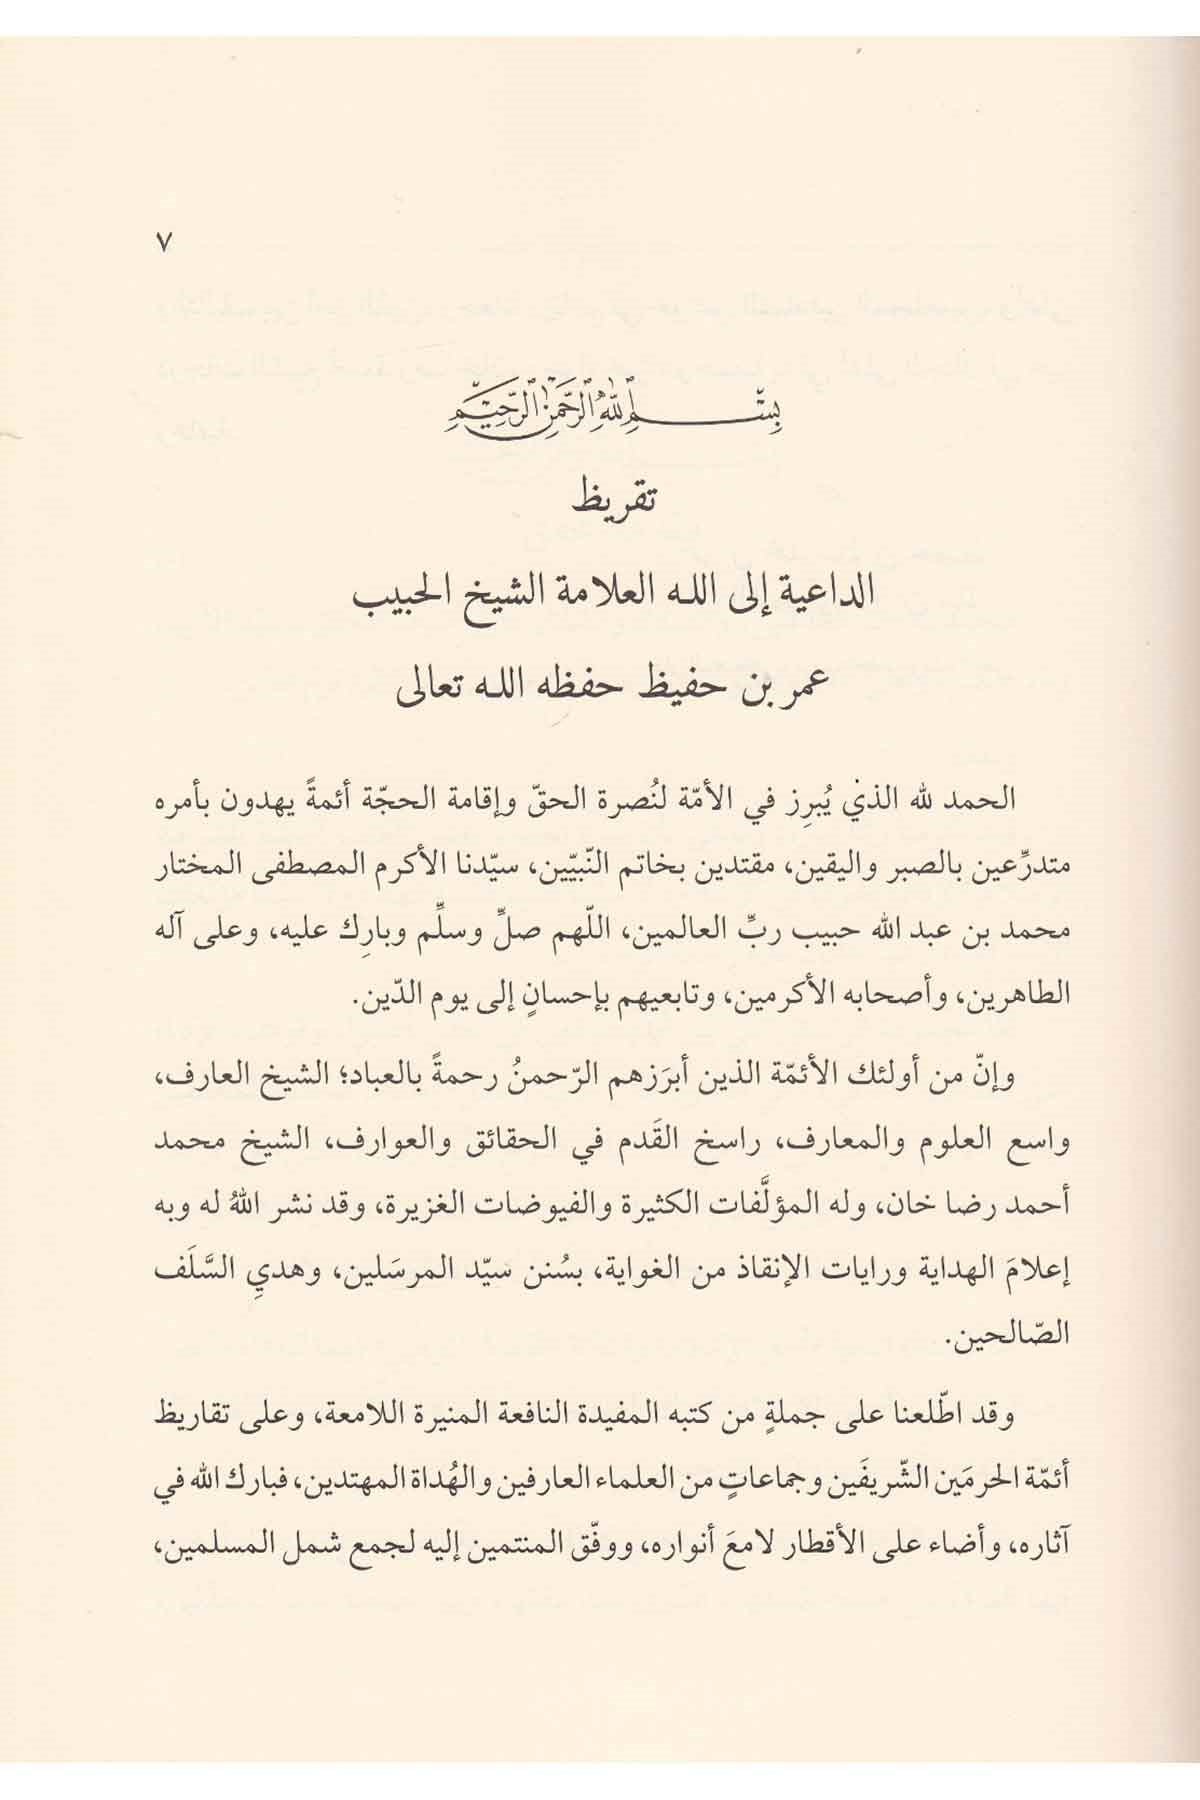 ٧
بسم الله الرحمن الرحيم
تقريظ
الداعية إلى الله العلامة الشيخ الحبيب
عمر بن حفيظ حفظه الله تعالى
الحمد لله الذي يُبرِز في الأمّة لنُصرة الحقّ وإقامة الحجّة أئمةً يهدون بأمره
متدرِّعين بالصبر واليقين، مقتدين بخاتم النّبيّين، سيّدنا الأكرم المصطفى المختار
محمد بن عبد الله حبيب ربِّ العالمين، اللّهم صلِّ وسلِّم وبارِك عليه، وعلى آله
الطاهرين، وأصحابه الأكرمين، وتابعيهم بإحسانٍ إلى يوم الدّين.
وإنّ من أولئك الأئمّة الذين أبرَزهم الرّحمنُ رحمةً بالعباد؛ الشيخ العارف،
واسع العلوم والمعارف، راسخ القَدم في الحقائق والعوارف، الشيخ محمد
أحمد رضا خان، وله المؤلَّفات الكثيرة والفيوضات الغزيرة، وقد نشر اللهُ له وبه
إعلامَ الهداية ورايات الإنقاذ من الغواية، بسُنن سيّد المرسَلين، وهديِ السَّلَف
الصّالحين.
وقد اطّلعنا على جملةٍ من كتبه المفيدة النافعة المنيرة اللامعة، وعلى تقاريظ
أئمّة الحرمَين الشّريفَين وجماعاتٍ من العلماء العارفين والهُداة المهتدين، فبارك الله في
آثاره، وأضاء على الأقطار لامعَ أنواره، ووفّق المنتمين إليه لجمع شمل المسلمين،